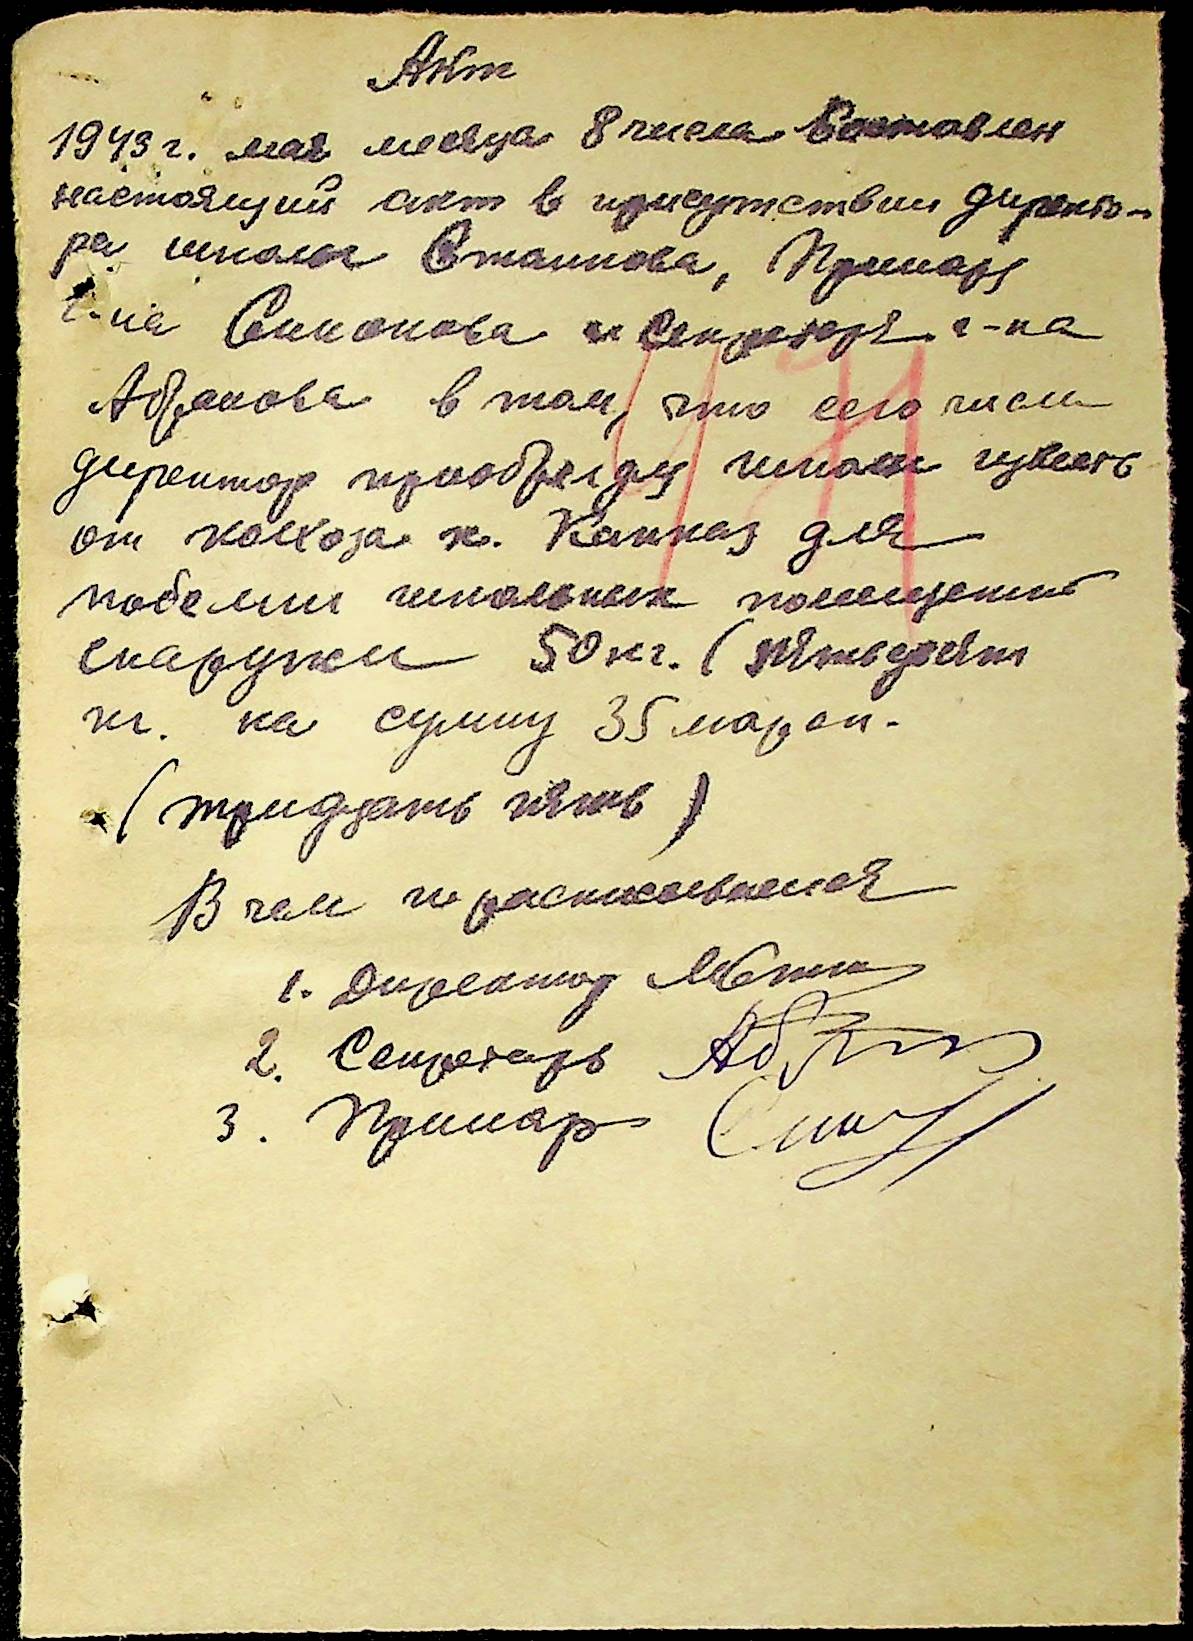 Акт
1943 г. мая месяца 8 числа Составлен
настоящий акт в присутствии директо-
ра школы Сташкова, Примару
г-на Симонова и Секретаря г-на
Абрамова в том, что сего числа
директор приобрел для школы известь
от колхоза к. Кавказ для
побелки школьных помещений
снаружи 50 кг. (пятьдесят
кг. на сумму 35 марок.
(тридцать пять)
В чем и расписываемся
1. Директор
2. Секретарь
3. Примар